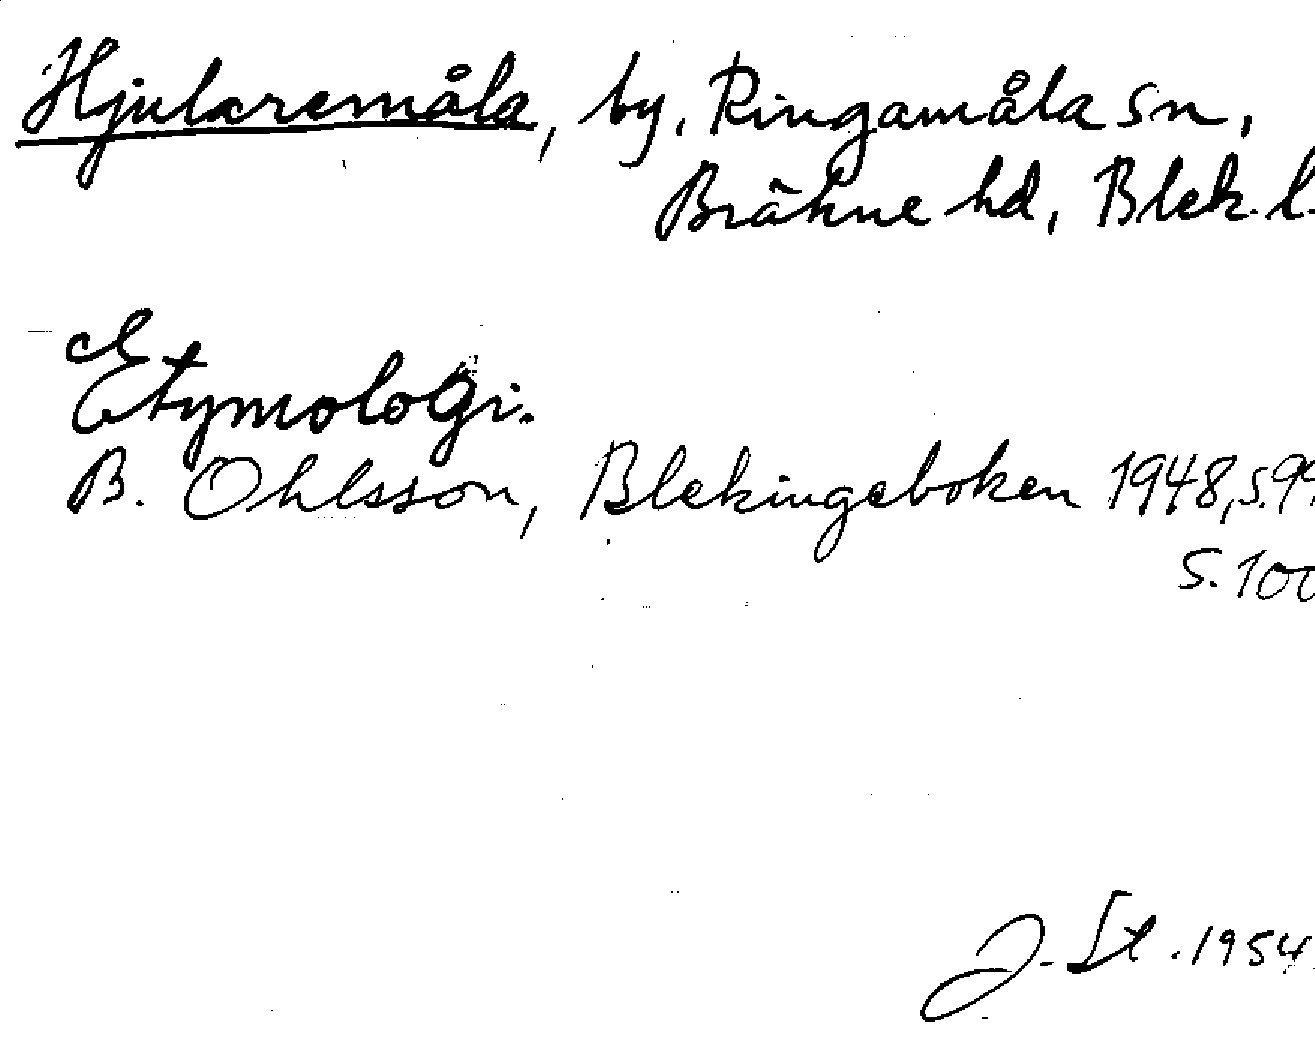 Hjularemåla, by, Ringamåla sn,
Bräkne hd, Blek. l.
Etymologi.
B. Ohlsson, Blekingeboken 1948, s. 99
s. 100
J. St. 1954